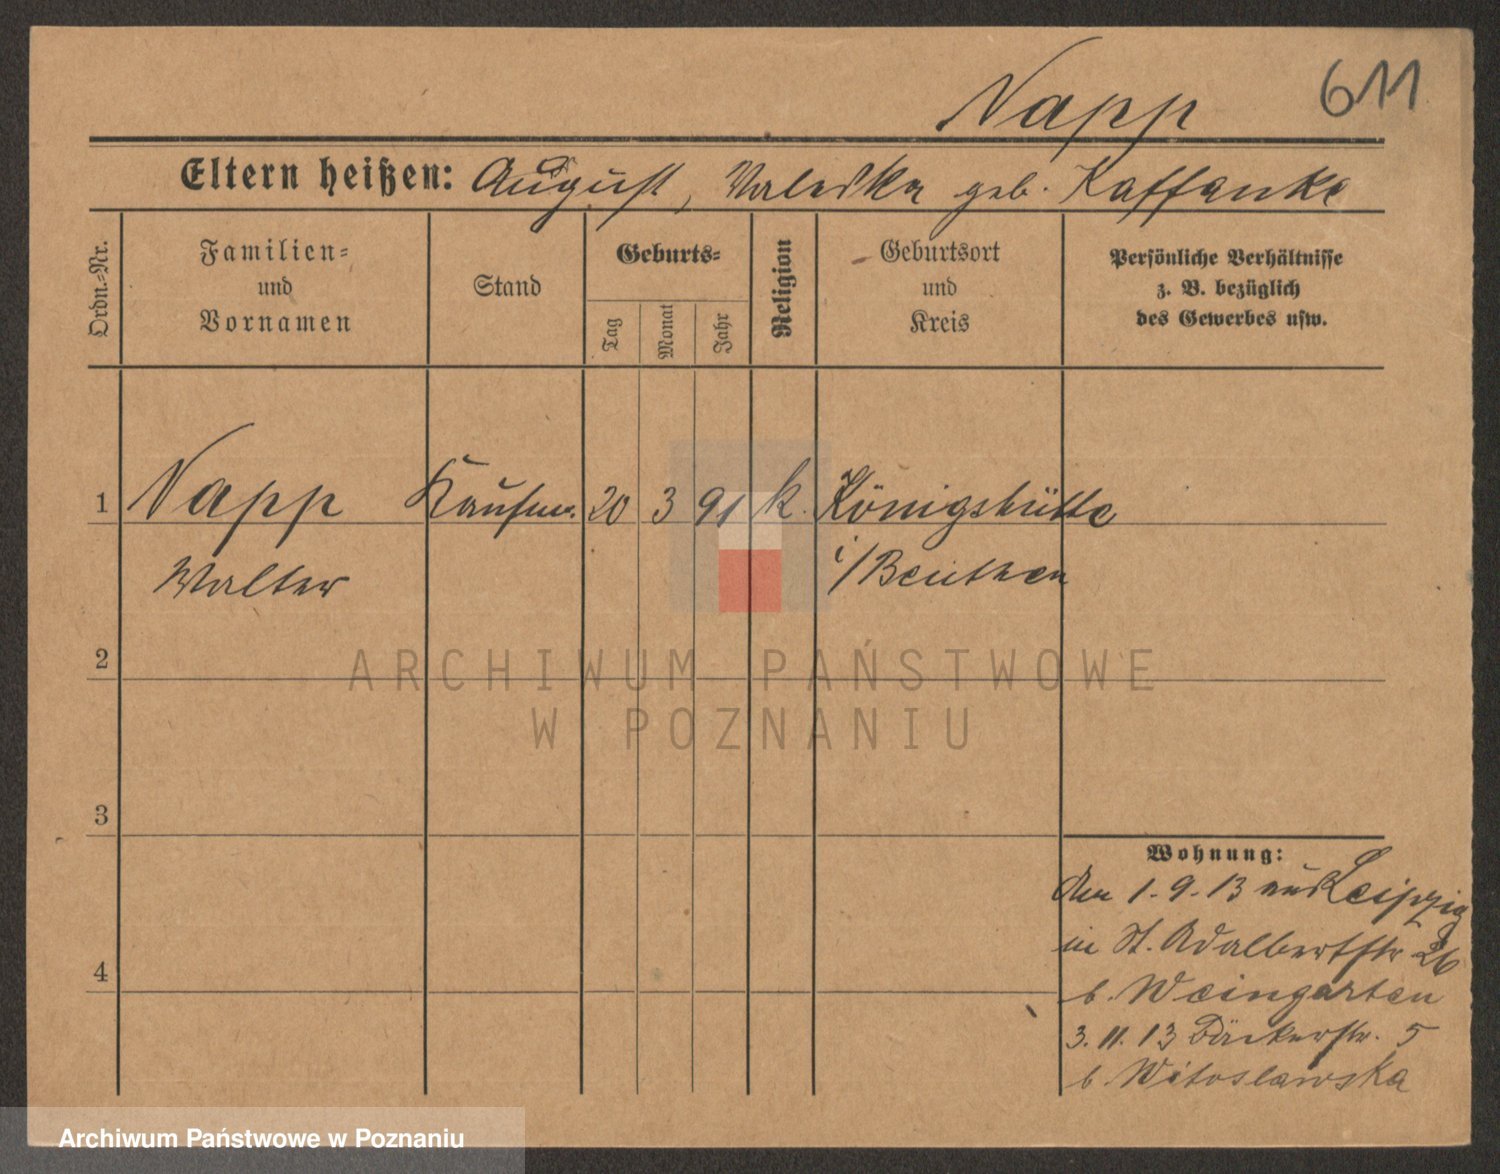 611
Napp
Eltern heißen: August, Valeska geb. Kaffanke
Ordn.-Nr.
Familien-
und
Vornamen
Stand
Geburts-
Tag
Monat
Jahr
Religion
Geburtsort
und
Kreis
Persönliche Verhältnisse
z. B. bezüglich
des Gewerbes usw.
1 Napp Kaufm. 20 3 91 k. Königshütte
Walter i/Beuthen
2
3
4
Wohnung:
Am 1.9.13 aus Leipzig
in St. Adalbertstr 26
b. Weingarten
3.11.13 Bäckerstr. 5
b. Witoslawska
ARCHIWUM PAŃSTWOWE
W POZNANIU
Archiwum Państwowe w Poznaniu